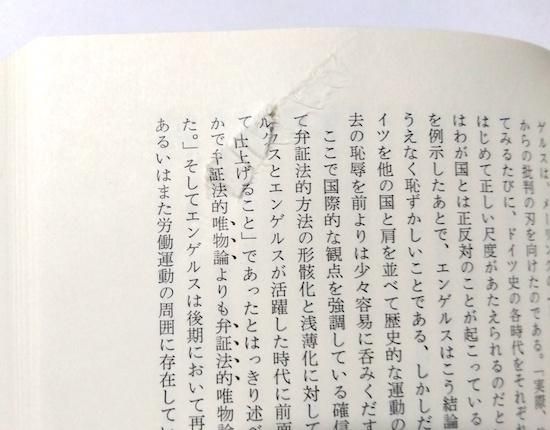 ゲルスは、メーリングの
からの批判の刃を向けたのである。「実際、
てみるたびに、ドイツ史の各時代をそれぞれ
はじめて正しい尺度があたえられるのだと
はわが国とは正反対のことが起こっている
を例示したあとで、エンゲルスはこう結論
うえなく恥ずかしいことである、しかしだ
イツを他の国と肩を並べて歴史的な運動の
去の恥辱を前よりは少々容易に呑みくだす
ここで国際的な観点を強調している確信
て弁証法的方法の形骸化と浅薄化に対して
ルクスとエンゲルスが活躍した時代に前面
て仕上げること」であったとはっきり述べ
かで弁証法的唯物論よりも弁証法的唯物論
た。」そしてエンゲルスは後期において再
あるいはまた労働運動の周囲に存在して